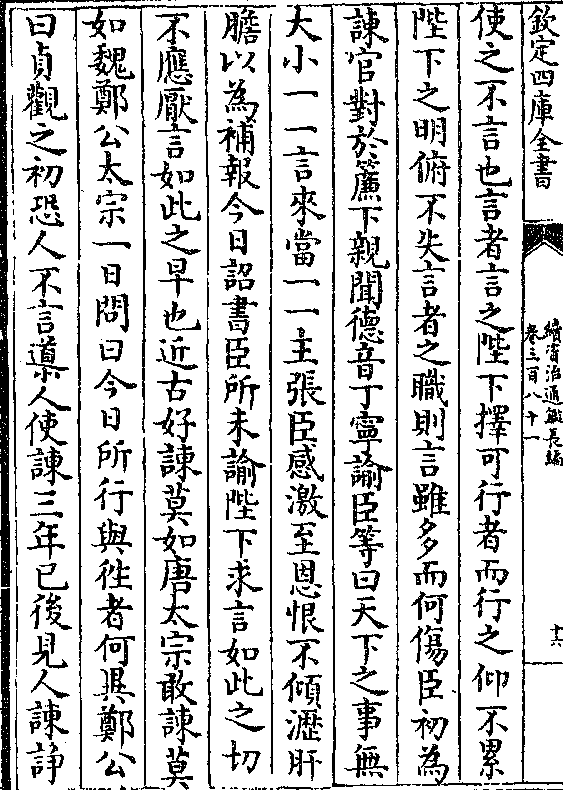 欽定四庫全書
續資治通鑑長編
卷三百八十一
十六
使之不言也言者言之陛下擇可行者而行之仰不累
陛下之明俯不失言者之職則言雖多而何傷臣初為
諫官對於簾下親聞德音丁寧諭臣等曰天下之事無
大小一一言來當一一主張臣感激至恩恨不傾瀝肝
膽以為補報今日詔書臣所未諭陛下求言如此之切
不應厭言如此之早也近古好諫莫如唐太宗敢諫莫
如魏鄭公太宗一日問曰今日所行與徃者何異鄭公
曰貞觀之初恐人不言導人使諫三年已後見人諫諍